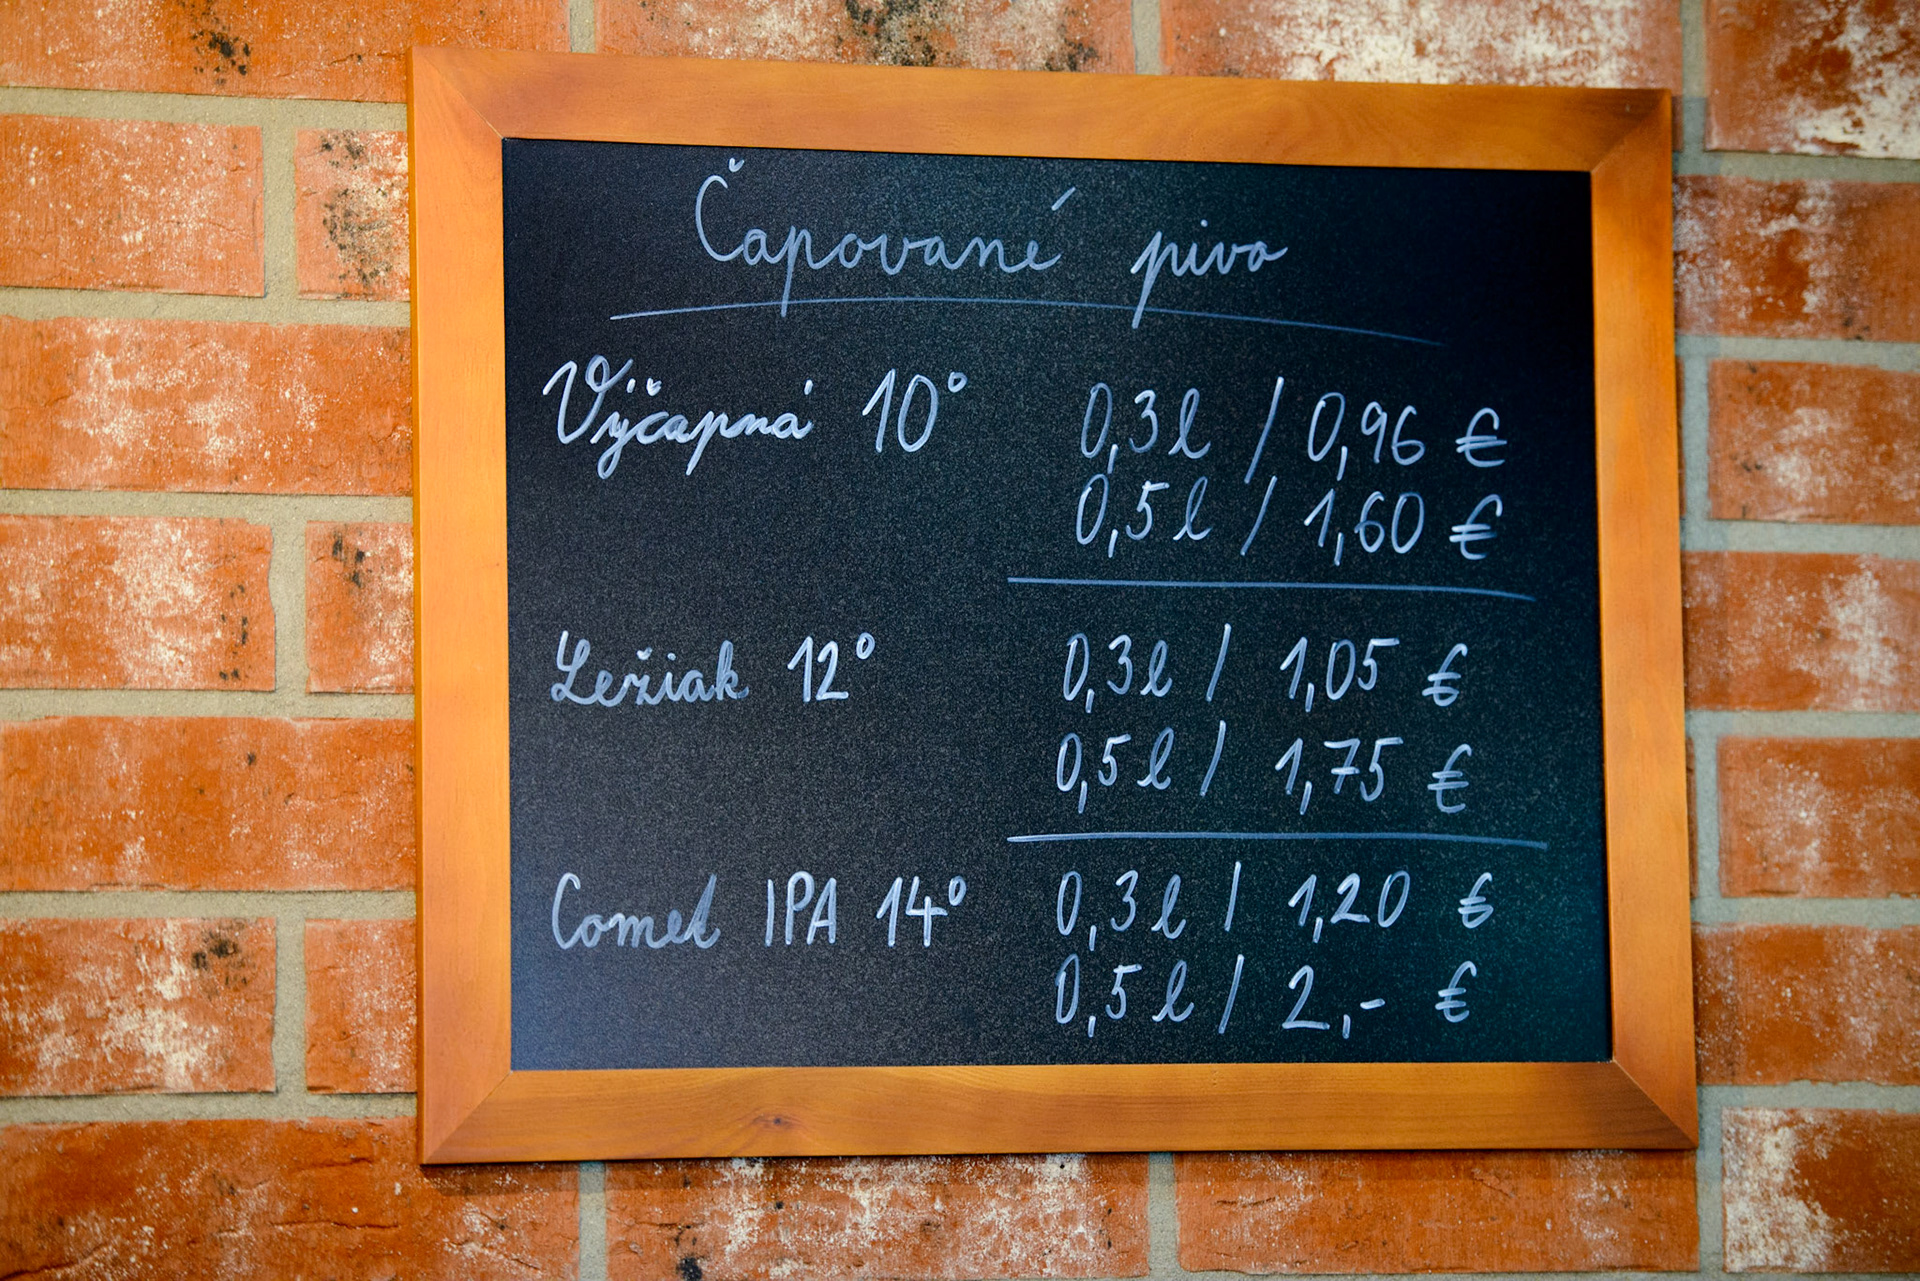 Čapované piva
Výčapná 10° 0,3l / 0,96 €
0,5l / 1,60 €
Ležiak 12° 0,3l / 1,05 €
0,5l / 1,75 €
Comet IPA 14° 0,3l / 1,20 €
0,5l / 2,- €